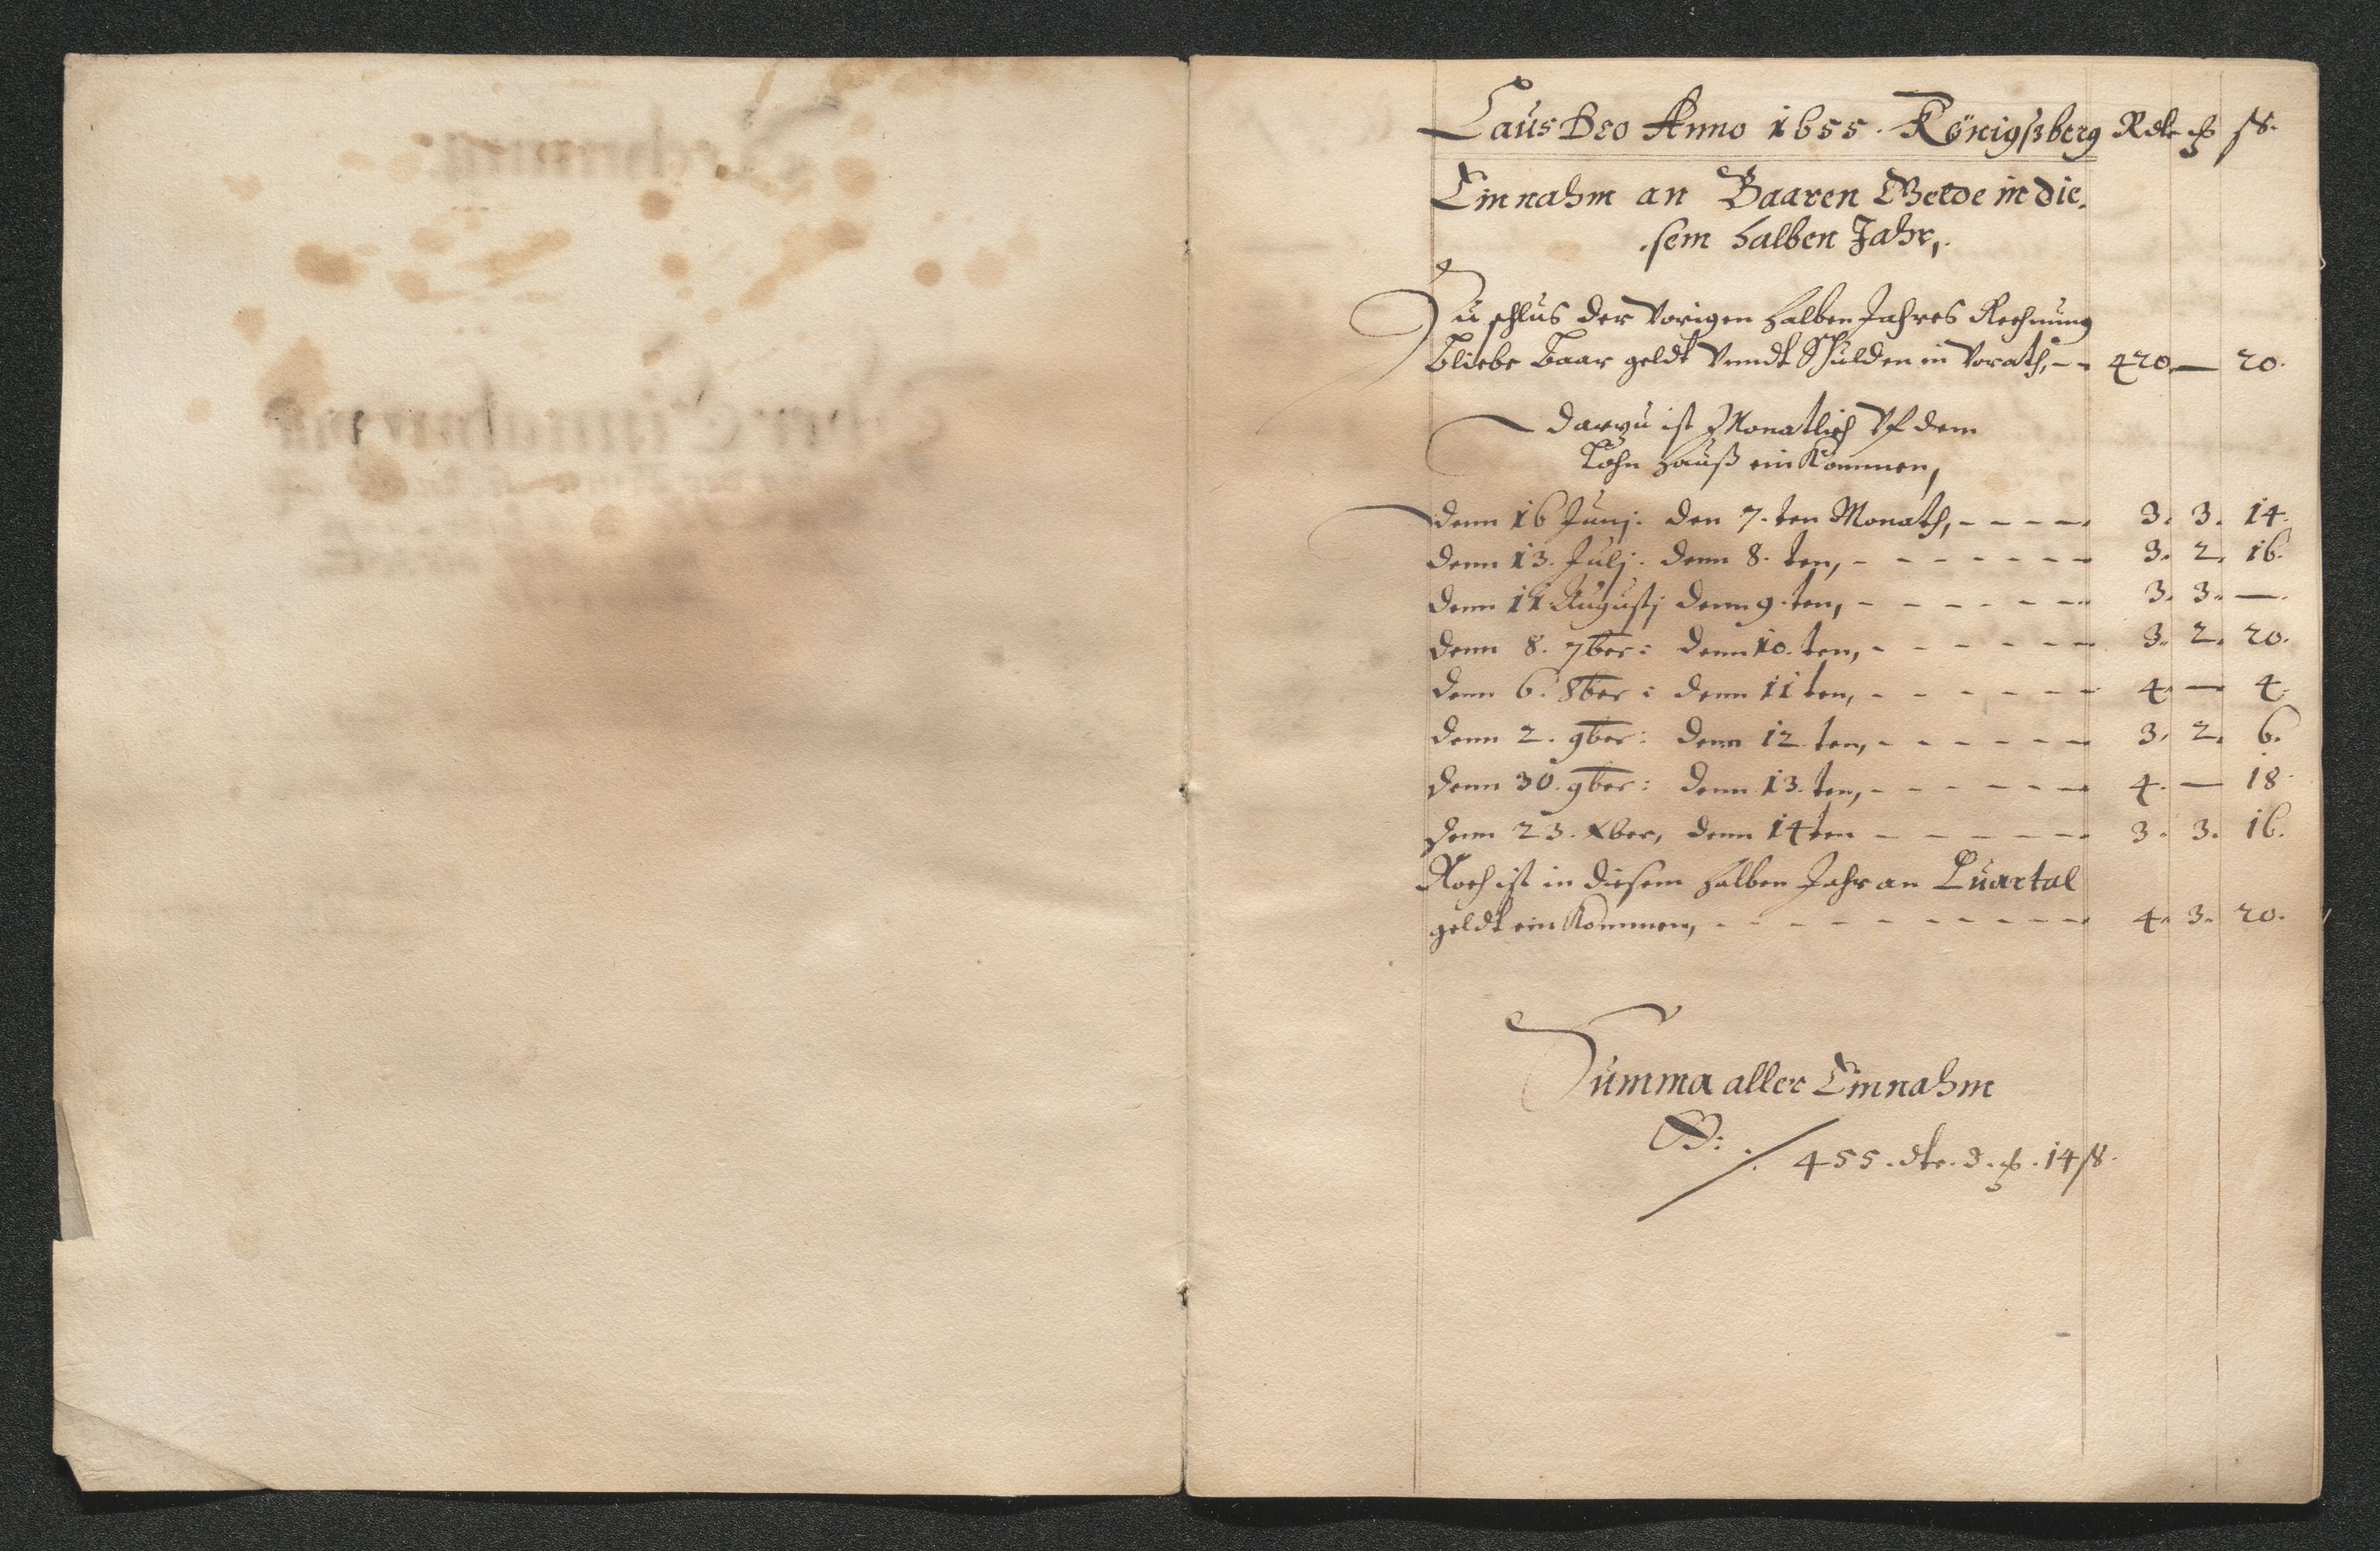 Laus Deo Anno 1655. Königßberg Rdlr ß
Einnahm an Baaren Gelde in die,
sem halben Jahr,
Zu schlus der Vorigen halben Jahres Rechnung
bliebe baar geldt Vnndt Schulden in Vorath, -- 420 — 20.
Darzu ist Monatlich Vf dem
Lohn hauß ein Kommen,
Denn 16 Junj. den 7. ten Monath, - - - - 3. 3. 14.
Denn 13. Julj. denn 8. ten, - - - - - - 3. 2. 16.
Denn 11 Augustj denn 9. ten, - - - - - - 3. 3. —.
Denn 8. 7ber: denn 10. ten, - - - - - - 3. 2. 20.
Denn 6. 8ber: denn 11 ten, - - - - - - 4. — 4.
Denn 2. 9ber: denn 12. ten, - - - - - - 3. 2. 6.
Denn 30. 9ber: denn 13. ten, - - - - - - 4. — 18
Denn 23. Xber, denn 14 ten - - - - - - 3. 3. 16.
Noch ist in diesem halben Jahr an Quartal
geldt ein Kommen, - - - - - - - - - - 4. 3. 20.
Summa aller Einnahm
455. dlr. 3. 14 ß.